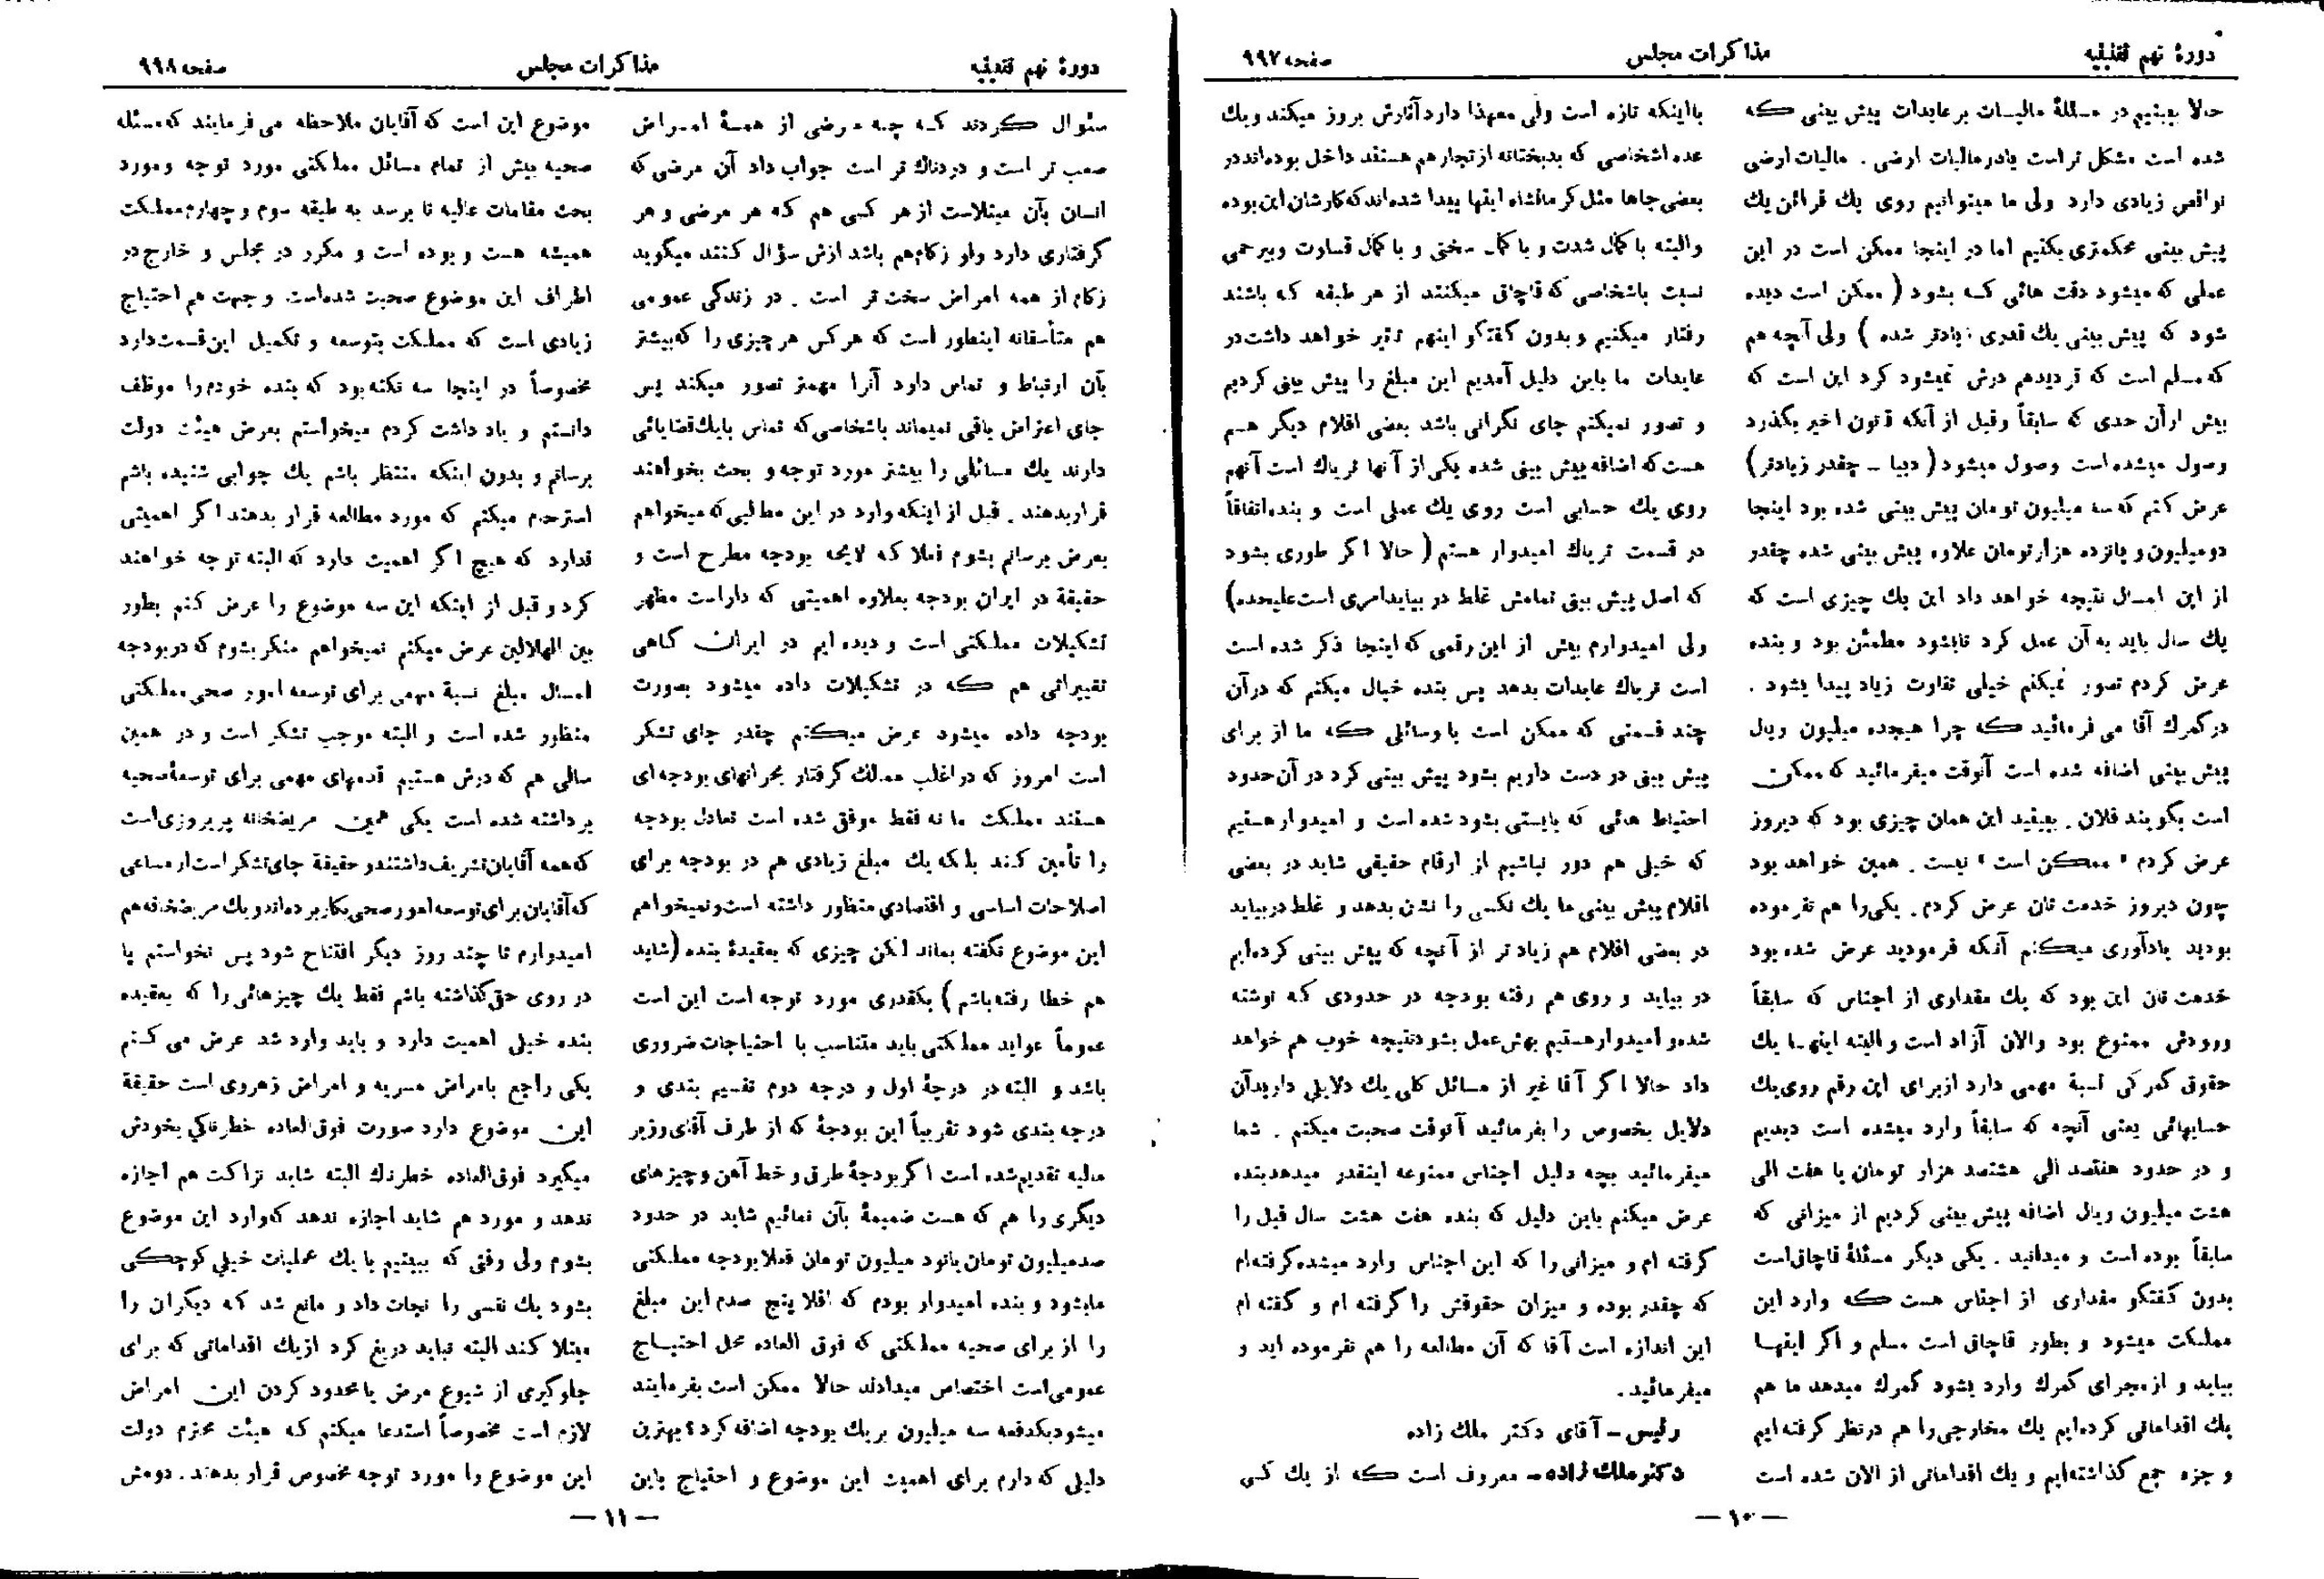 دورهٔ نهم تقنینیه
مذاکرات مجلس
صفحه ۹۹۷
حالا ببینیم در مسئلهٔ مالیات بر عایدات پیش بینی که
شده است مشکل تر است یا در مالیات ارضی . مالیات ارضی
نواقص زیادی دارد ولی ما میتوانیم روی یك قرائن یك
پیش بینی محکمتری بکنیم اما در اینجا ممکن است در این
عملی که میشود دقت هائی که بشود ( ممکن است دیده
شود که پیش بینی یك قدری زیادتر شده ) ولی آنچه هم
که مسلم است که تردید هم درش نمیشود کرد این است که
بیش از آن حدی که سابقاً و قبل از آنکه قانون اخیر بگذرد
وصول میشده است وصول میشود ( دیبا ـ چقدر زیادتر )
عرض کنم که سه میلیون تومان پیش بینی شده بود اینجا
دو میلیون و پانزده هزار تومان علاوه پیش بینی شده چقدر
از این امسال نتیجه خواهد داد این یك چیزی است که
یك سال باید به آن عمل کرد تا بشود مطمئن بود و بنده
عرض کردم تصور نمیکنم خیلی تفاوت زیاد پیدا بشود .
در گمرك آقا می فرمائید که چرا هیجده میلیون ریال
پیش بینی اضافه شده است آنوقت میفرمائید که ممکن
است بگویند فلان . ببینید این همان چیزی بود که دیروز
عرض کردم « ممکن است » نیست . همین خواهد بود
چون دیروز خدمت تان عرض کردم . یکی را هم نفرموده
بودید یادآوری میکنم آنکه فرمودید عرض شده بود
خدمت تان این بود که یك مقداری از اجناس که سابقاً
ورودش ممنوع بود والان آزاد است و البته اینها یك
حقوق گمرکی نسبة مهمی دارد از برای این رقم روی یك
حسابهائی یعنی آنچه که سابقاً وارد میشده است دیدیم
و در حدود هفتصد الی هشتصد هزار تومان یا هفت الی
هشت میلیون ریال اضافه پیش بینی کردیم از میزانی که
سابقاً بوده است و میدانید . یکی دیگر مسئلهٔ قاچاق است
بدون گفتگو مقداری از اجناس هست که وارد این
مملکت میشود و بطور قاچاق است مسلم و اگر اینها
بیاید و از مجرای گمرك وارد بشود گمرك میدهد ما هم
یك اقداماتی کرده‌ایم یك مخارجی را هم در نظر گرفته ایم
و جزء جمع گذاشته‌ایم و یك اقداماتی از الان شده است
با اینکه تازه است ولی معهذا دارد آثارش بروز میکند و یك
عده اشخاصی که بدبختانه از تجار هم هستند داخل بوده‌اند در
بعضی جاها مثل کرمانشاه اینها پیدا شده‌اند که کارشان این بوده
والبته با کمال شدت و با کمال سختی و با کمال قساوت و بیرحمی
نسبت باشخاصی که قاچاق میکنند از هر طبقه که باشند
رفتار میکنیم و بدون گفتگو اینهم تأثیر خواهد داشت در
عایدات ما باین دلیل آمدیم این مبلغ را پیش بینی کردیم
و تصور نمیکنم جای نگرانی باشد بعضی اقلام دیگر هم
هست که اضافه پیش بینی شده یکی از آنها تریاك است آنهم
روی یك حسابی است روی یك عملی است و بنده اتفاقاً
در قسمت تریاك امیدوار هستم ( حالا اگر طوری بشود
که اصل پیش بینی تمامش غلط در بیاید امری است علیحده )
ولی امیدوارم بیش از این رقمی که اینجا ذکر شده است
است تریاك عایدات بدهد پس بنده خیال میکنم که در آن
چند قسمتی که ممکن است با وسائلی که ما از برای
پیش بینی در دست داریم بشود پیش بینی کرد در آن حدود
احتیاط هائی که بایستی بشود شده است و امیدوار هستیم
که خیلی هم دور نباشیم از ارقام حقیقی شاید در بعضی
اقلام پیش بینی ما یك نکسی را نشان بدهد و غلط در بیاید
در بعضی اقلام هم زیاد تر از آنچه که پیش بینی کرده‌ایم
در بیاید و روی هم رفته بودجه در حدودی که نوشته
شده و امیدوار هستیم بهش عمل بشود نتیجه خوب هم خواهد
داد حالا اگر آقا غیر از مسائل کلی یك دلایلی دارید آن
دلایل بخصوص را بفرمائید آنوقت صحبت میکنم . شما
میفرمائید بچه دلیل اجناس ممنوعه اینقدر میدهد بنده
عرض میکنم باین دلیل که بنده هفت هشت سال قبل را
گرفته ام و میزانی را که این اجناس وارد میشده گرفته‌ام
که چقدر بوده و میزان حقوقش را گرفته ام و گفته ام
این اندازه است آقا که آن مطالعه را هم نفرموده اید و
میفرمائید .
رئیس ـ آقای دکتر ملك زاده
دکتر ملك زاده ـ معروف است که از یك کسی
— ۱۰ —
دورهٔ نهم تقنینیه
مذاکرات مجلس
صفحه ۹۹۸
سئوال کردند که چه مرضی از همهٔ امراض
صعب تر است و دردناك تر است جواب داد آن مرضی که
انسان بآن مبتلاست از هر کسی هم که هر مرضی و هر
گرفتاری دارد ولو زکام هم باشد ازش سؤال کنند میگوید
زکام از همه امراض سخت تر است . در زندگی عمومی
هم متأسفانه اینطور است که هر کس هر چیزی را که بیشتر
بآن ارتباط و تماس دارد آنرا مهمتر تصور میکند پس
جای اعتراض باقی نمیماند باشخاصی که تماس با یك قضایائی
دارند یك مسائلی را بیشتر مورد توجه و بحث بخواهند
قرار بدهند . قبل از اینکه وارد در این مطالبی که میخواهم
بعرض برسانم بشوم فعلا که لایحه بودجه مطرح است و
حقیقة در ایران بودجه بعلاوه اهمیتی که داراست مظهر
تشکیلات مملکتی است و دیده ایم در ایران گاهی
تغییراتی هم که در تشکیلات داده میشود بصورت
بودجه داده میشود عرض میکنم چقدر جای تشکر
است امروز که در اغلب ممالك گرفتار بحرانهای بودجه ای
هستند مملکت ما نه فقط موفق شده است تعادل بودجه
را تأمین کند بلکه یك مبلغ زیادی هم در بودجه برای
اصلاحات اساسی و اقتصادی منظور داشته است و نمیخواهم
این موضوع نگفته بماند لکن چیزی که بعقیدهٔ بنده ( شاید
هم خطا رفته باشم ) یکقدری مورد توجه است این است
عموماً عواید مملکتی باید متناسب با احتیاجات ضروری
باشد و البته در درجهٔ اول و درجه دوم تقسیم بندی و
درجه بندی شود تقریباً این بودجهٔ که از طرف آقای وزیر
مالیه تقدیم شده است اگر بودجهٔ طرق و خط آهن و چیز های
دیگری را هم که هست ضمیمهٔ بآن نمائیم شاید در حدود
صد میلیون تومان یا نود میلیون تومان فعلا بودجه مملکتی
ما بشود و بنده امیدوار بودم که اقلا پنج صدم این مبلغ
را از برای صحیه مملکتی که فوق العاده محل احتیاج
عمومی است اختصاص میدادند حالا ممکن است بفرمایند
میشود یکدفعه سه میلیون بر یك بودجه اضافه کرد ؟ بهترین
دلیلی که دارم برای اهمیت این موضوع و احتیاج باین
موضوع این است که آقایان ملاحظه می فرمایند که مسئله
صحیه بیش از تمام مسائل مملکتی مورد توجه و مورد
بحث مقامات عالیه تا برسد به طبقه سوم و چهارم مملکت
همیشه هست و بوده است و مکرر در مجلس و خارج در
اطراف این موضوع صحبت شده‌است و جهت هم احتیاج
زیادی است که مملکت بتوسعه و تکمیل این قسمت دارد
مخصوصاً در اینجا سه نکته بود که بنده خودم را موظف
دانستم و یاد داشت کردم میخواستم بعرض هیئت دولت
برسانم و بدون اینکه منتظر باشم یك جوابی شنیده باشم
استرحام میکنم که مورد مطالعه قرار بدهند اگر اهمیتی
ندارد که هیچ اگر اهمیت دارد که البته توجه خواهند
کرد و قبل از اینکه این سه موضوع را عرض کنم بطور
بین الهلالین عرض میکنم نمیخواهم منکر بشوم که در بودجه
امسال مبلغ نسبة مهمی برای توسعه امور صحی مملکتی
منظور شده است و البته موجب تشکر است و در همین
سالی هم که درش هستیم قدمهای مهمی برای توسعهٔ صحیه
برداشته شده است یکی همین مریضخانه پریروزی است
که همه آقایان تشریف داشتند و حقیقة جای تشکر است از مساعی
که آقایان برای توسعه امور صحی بکار برده‌اند و یك مریضخانه هم
امیدوارم تا چند روز دیگر افتتاح شود پس نخواستم پا
در روی حق گذاشته باشم فقط یك چیزهائی را که بعقیده
بنده خیلی اهمیت دارد و باید وارد شد عرض می کنم
یکی راجع بامراض مسریه و امراض زهروی است حقیقة
این موضوع دارد صورت فوق العاده خطرناکی بخودش
میگیرد فوق العاده خطرناك البته شاید نزاکت هم اجازه
ندهد و مورد هم شاید اجازه ندهد که وارد این موضوع
بشوم ولی وقتی که ببینیم با یك عملیات خیلی کوچکی
بشود یك نفسی را نجات داد و مانع شد که دیگران را
مبتلا کند البته نباید دریغ کرد از یك اقداماتی که برای
جلوگیری از شیوع مرض یا محدود کردن این امراض
لازم است مخصوصاً استدعا میکنم که هیئت محترم دولت
این موضوع را مورد توجه مخصوص قرار بدهند . دومش
— ۱۱ —